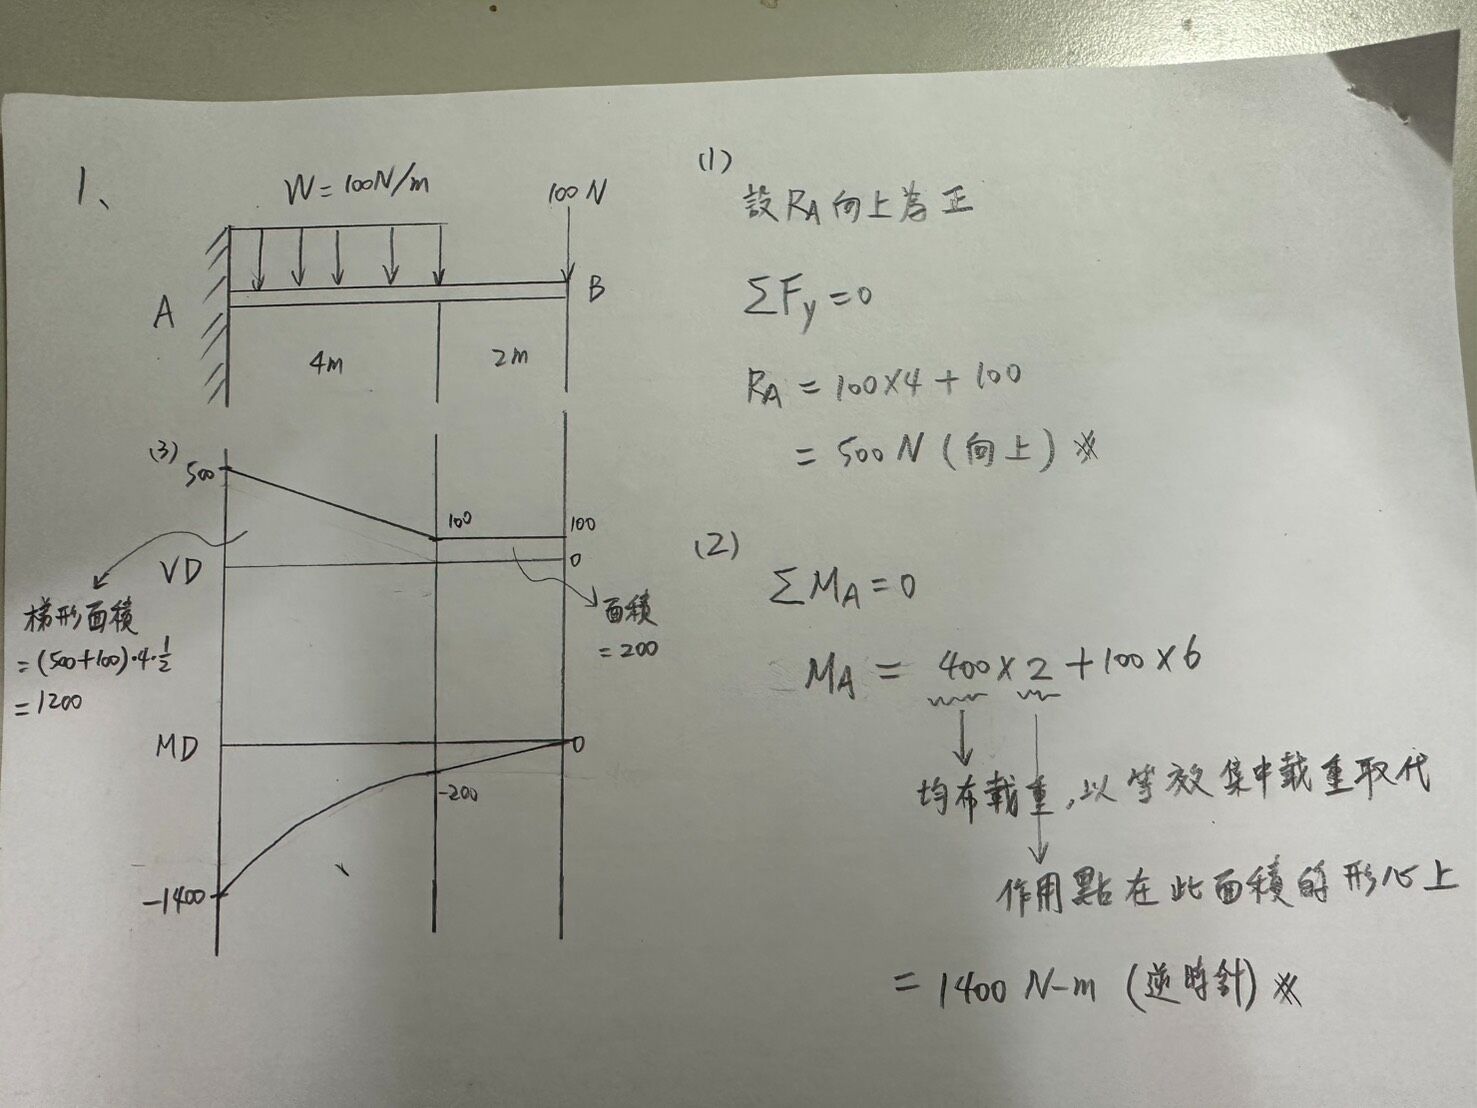 1、
W=100N/m
100N
A
B
4m
2m
(3)
500
100
100
VD
0
梯形面積
=(500+100)·4·1/2
=1200
面積
=200
MD
0
-200
-1400
(1)
設RA向上為正
ΣFy=0
RA=100×4+100
=500N(向上)※
(2)
ΣMA=0
MA=400×2+100×6
均布載重,以等效集中載重取代
作用點在此面積的形心上
=1400 N-m (逆時針)※